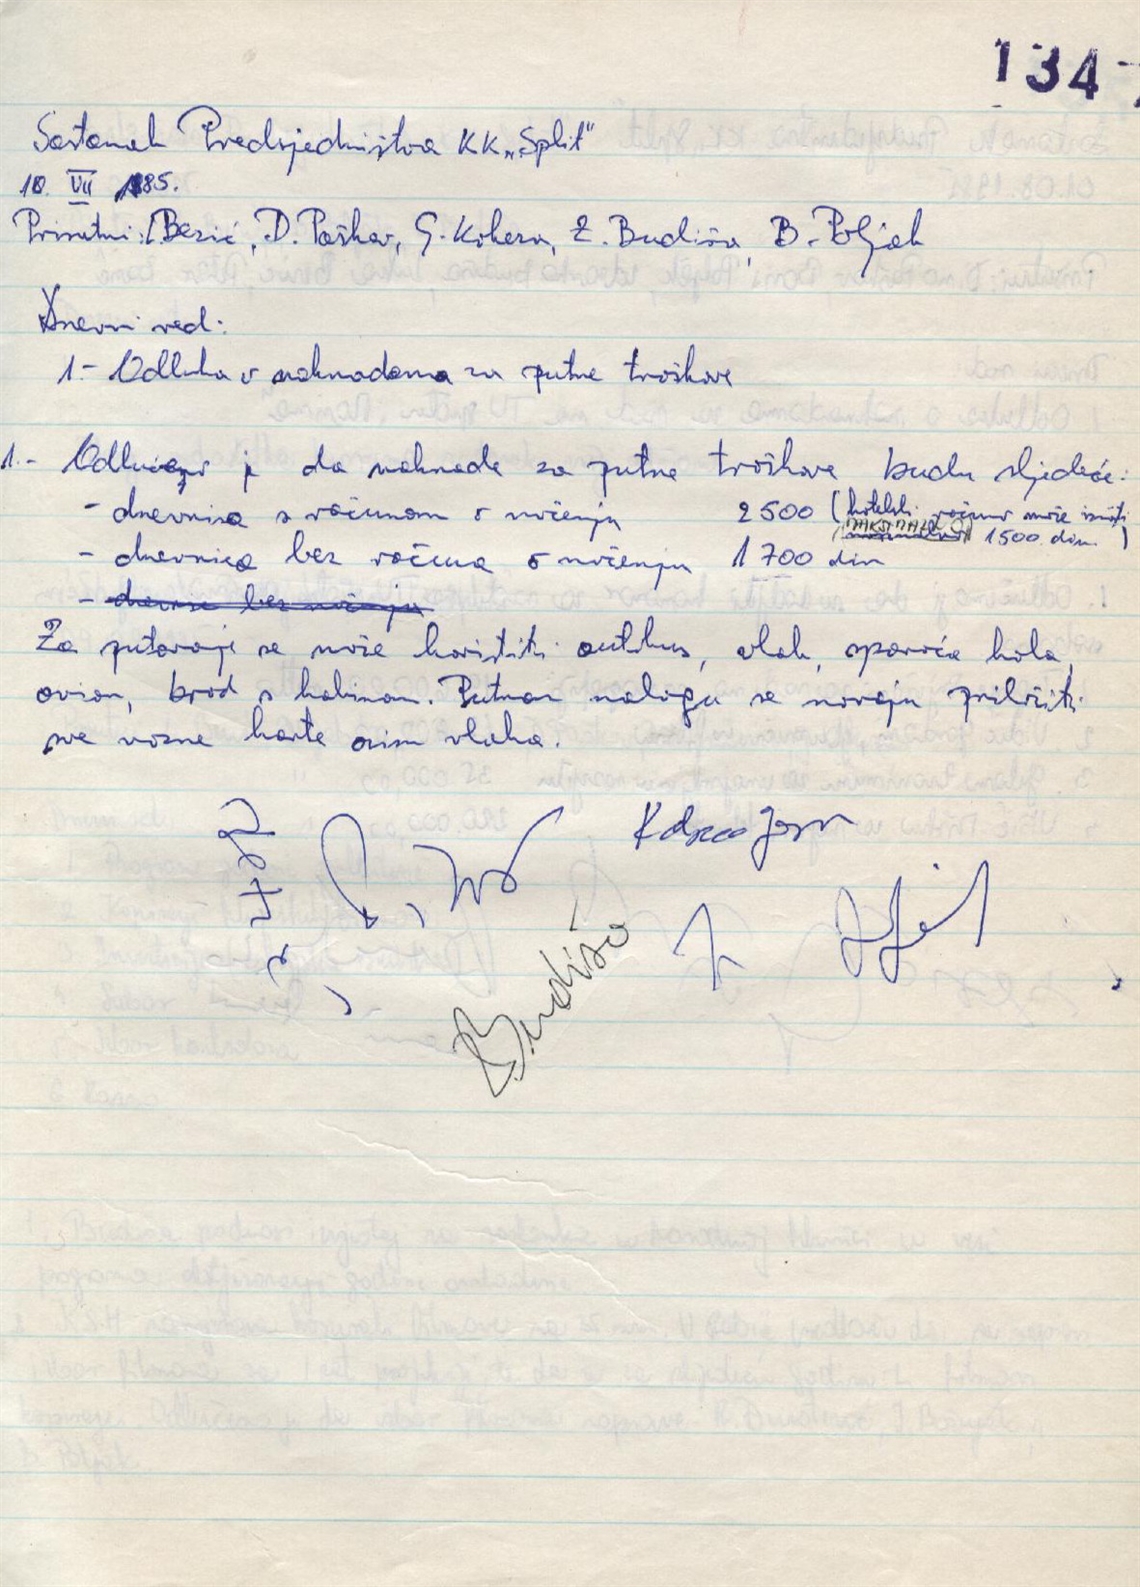 134
Sastanak Predsjedništva KK „Split"
10. VII 1985.
Prisutni: Bezić, D. Paškov, G. Kokeza, Z. Budiša, B. Poljak
Dnevni red:
1.- Odluka o naknadama za putne troškove
1.- Odlučeno je da naknade za putne troškove budu sljedeće:
- dnevnica s računom o noćenju 2500 (hotelski račun može iznositi
MAKSIMALNO 1500 din.)
- dnevnica bez računa o noćenju 1700 din
- dnevnice bez noćenja
Za putovanje se može koristiti autobus, vlak, spavaća kola,
avion, brod s kabinom. Putnom nalogu se moraju priložiti
sve vozne karte osim vlaka.
Budiša